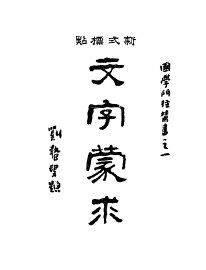 新式標點
國學門徑叢書之一
文字蒙求